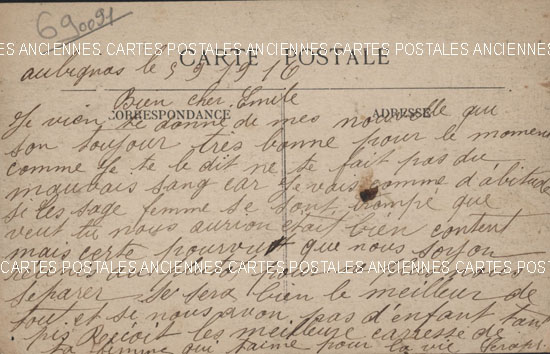 690091
CARTES POSTALES ANCIENNES CARTES POSTALES ANCIENNES CARTES POSTALES ANCIENNES
CARTE POSTALE
aubignas le 5 9 1916
Bien cher Emile
CORRESPONDANCE ADRESSE
Je vien te donné de mes nouvelle qui
son toujour très bonne pour le moment
comme Je te le dit ne te fait pas du
mauvais sang car Je vais comme d'abitude
si les sage femme se sont trompé que
veut tu nous aurion était bien content
mais pourvut que nous soyon
CARTES POSTALES ANCIENNES CARTES POSTALES ANCIENNES CARTES POSTALES ANCIENNES
séparer se sera bien le meilleur de
tou et si nous avon pas d'enfant tant
pis Recioit les meilleure caresse de
ta femme qui t'aime pour la vie